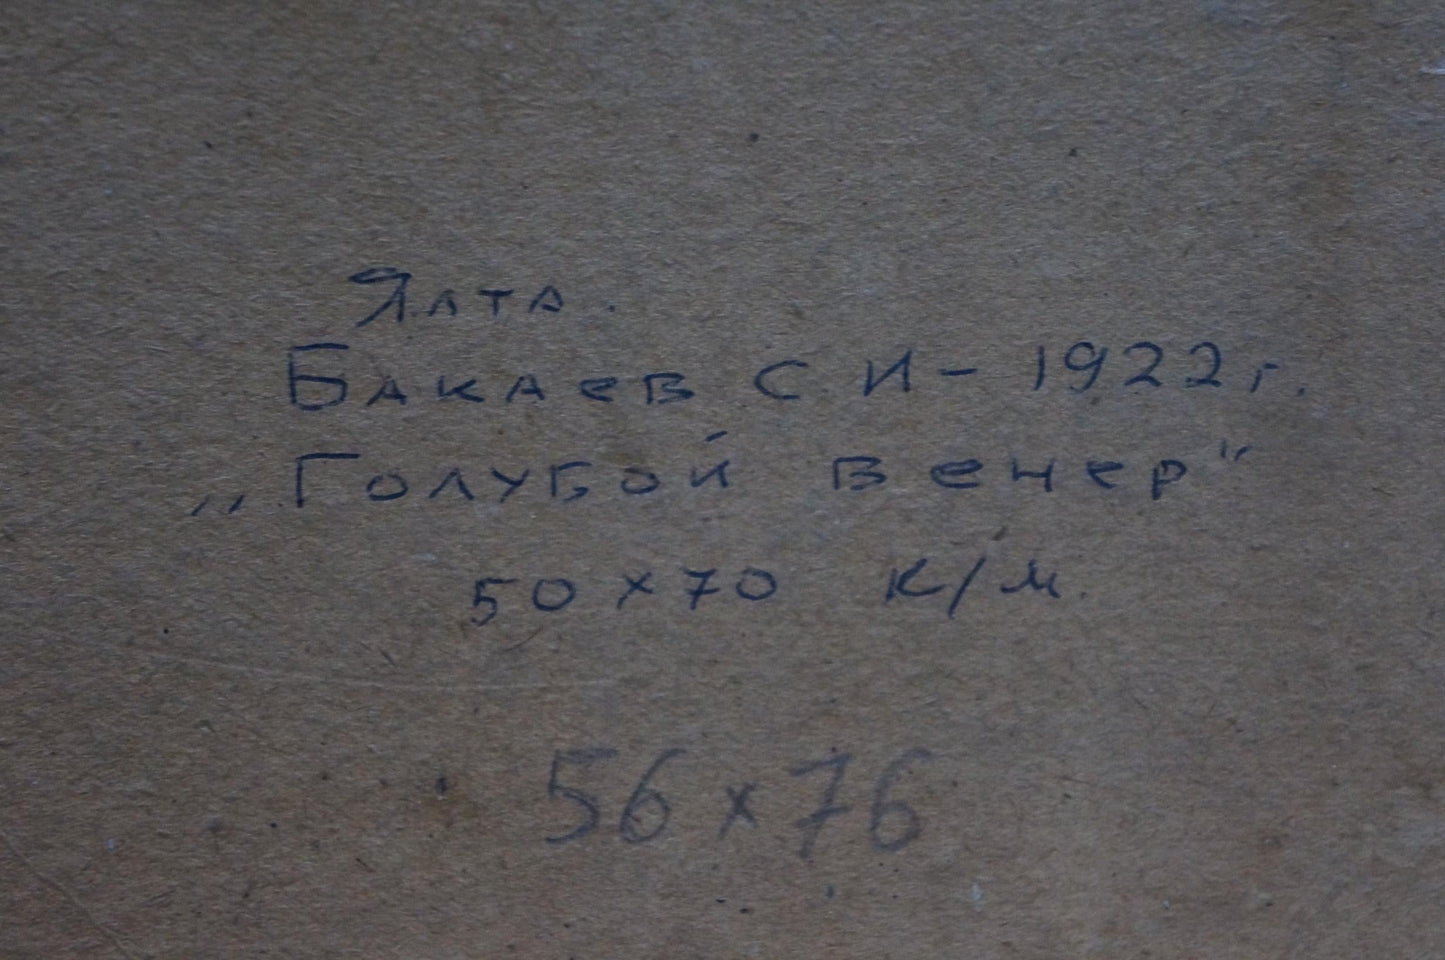 Ялта.
Бакаев С. И - 1922 г.
„Голубой вечер"
50 x 70 к/м.
56 x 76